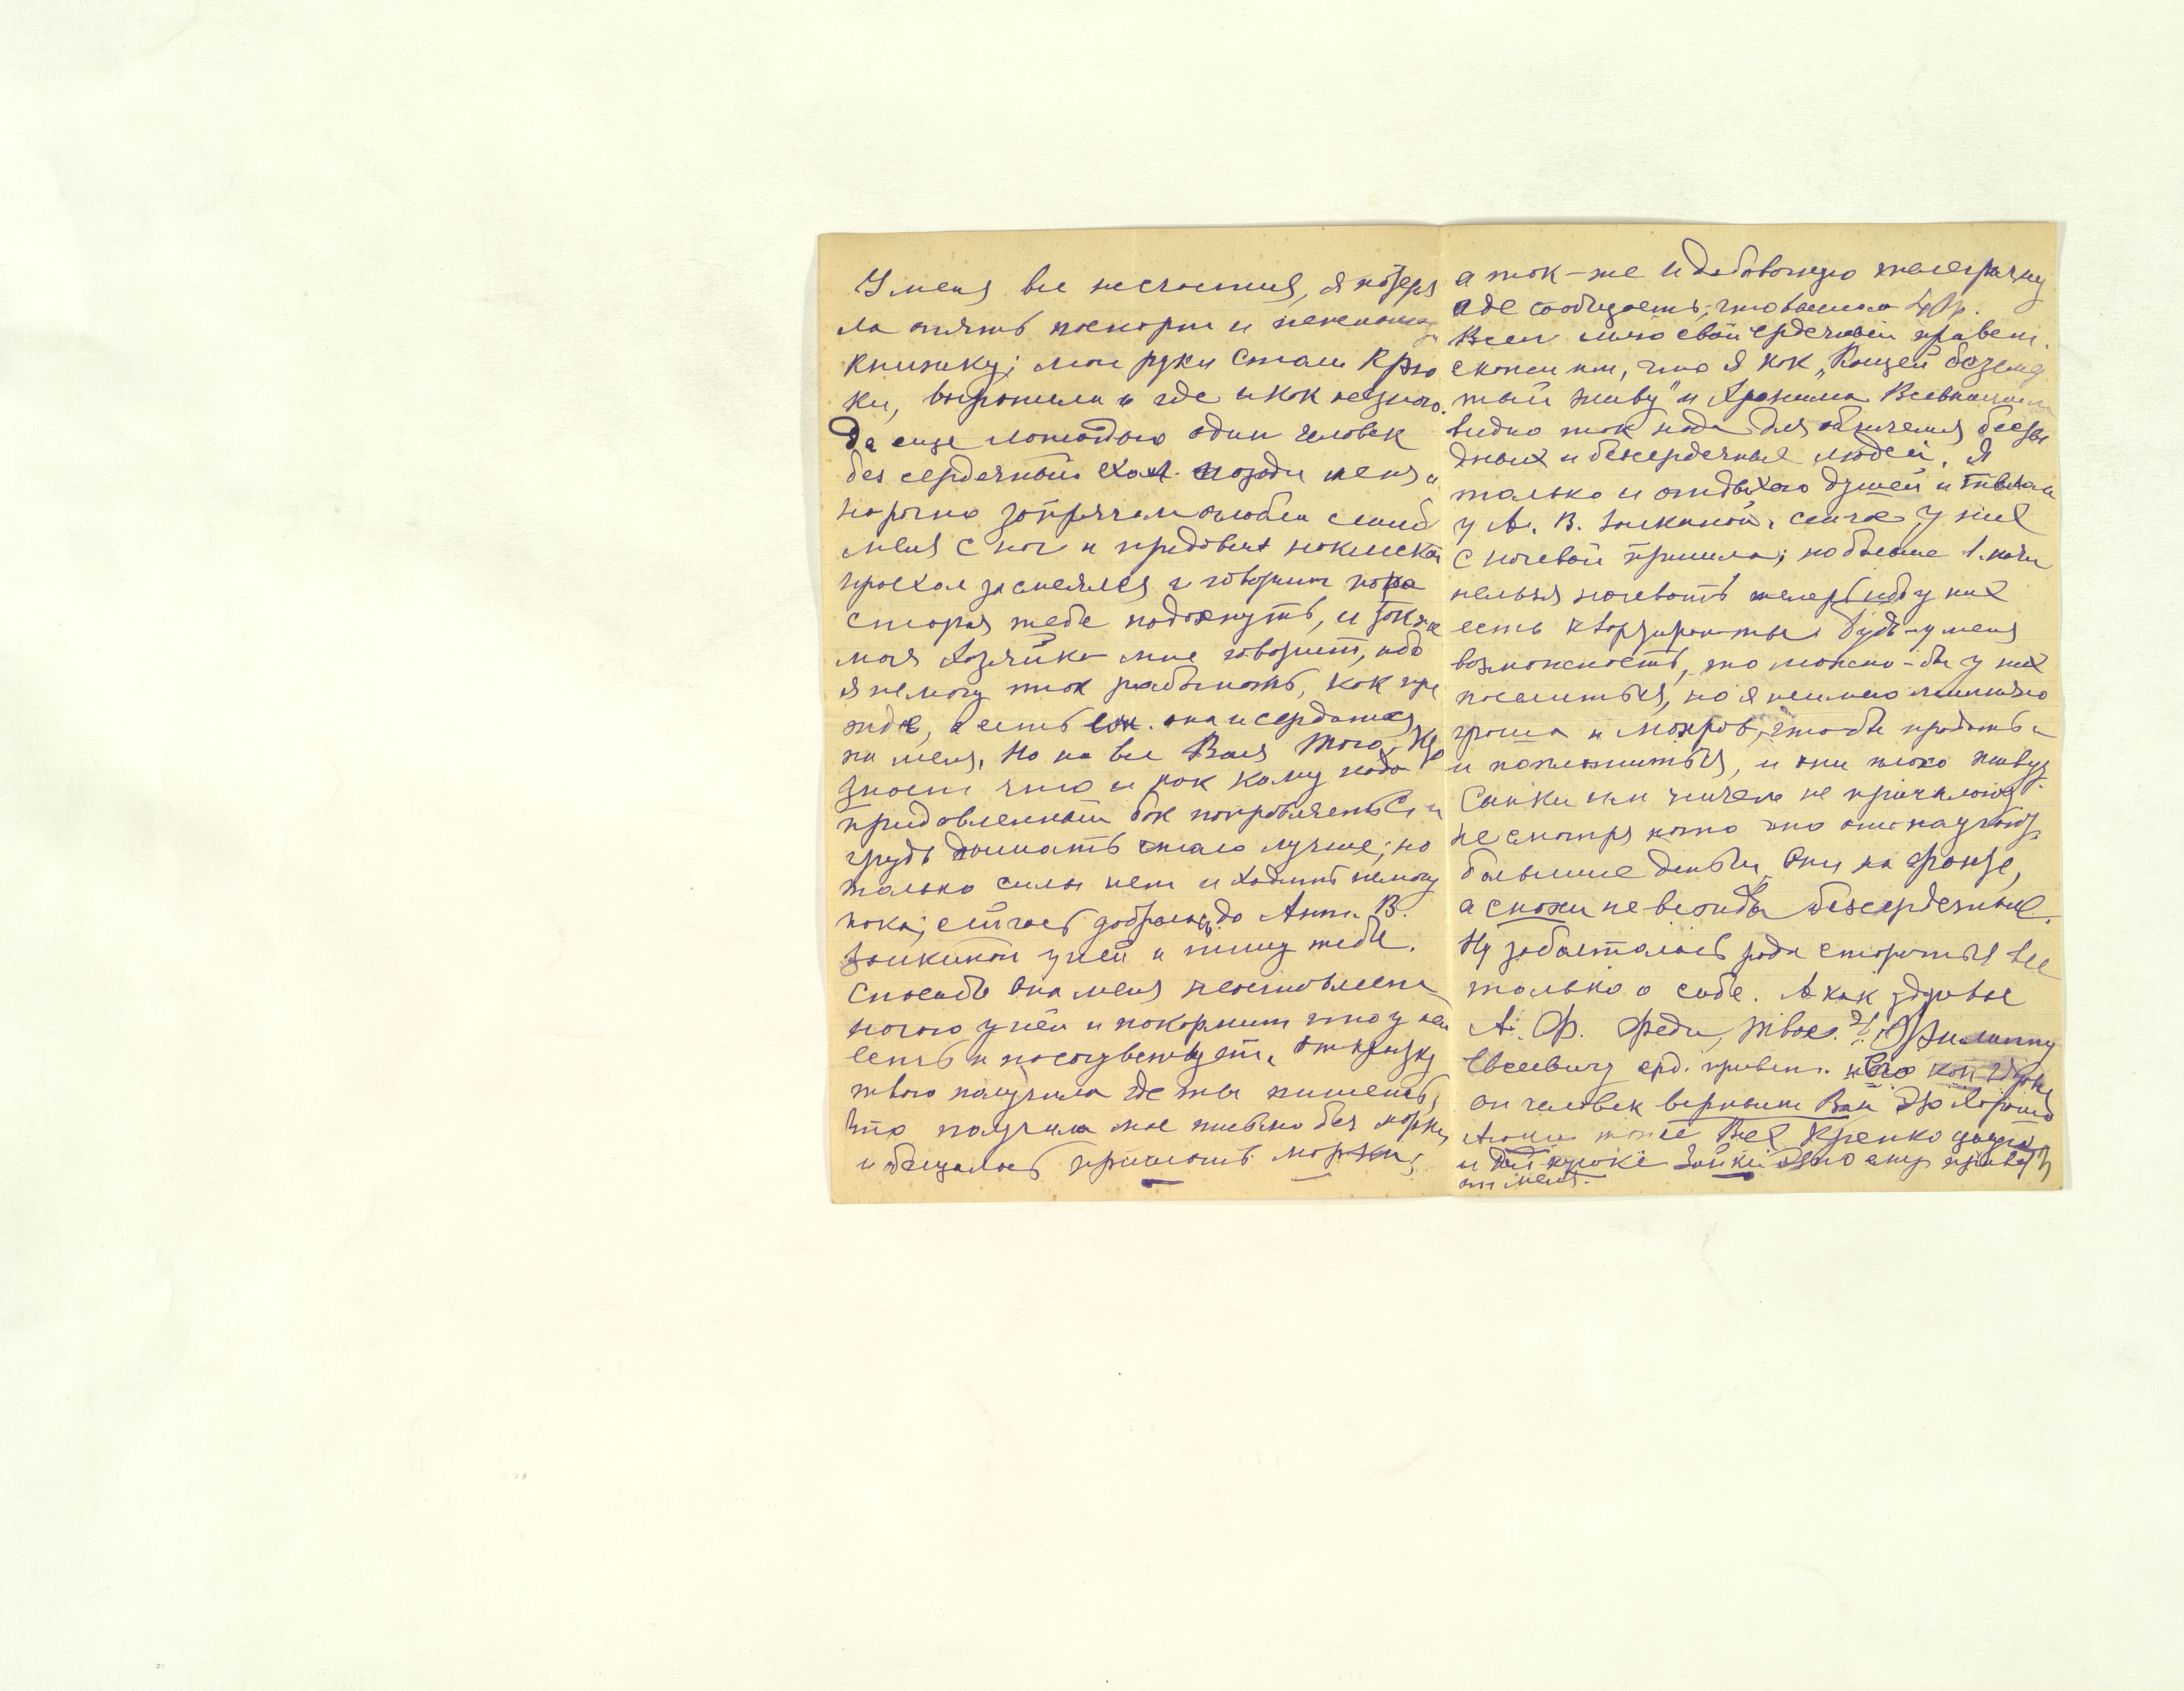 У меня все несчастия, я потеря
ла опять паспорт и пенсионную
книжку; мои руки стали крю
ки, выронила и где и как не знаю.
Да еще лошадью один человек
без сердечный ехал позади меня и
нарочно запрягом оглобли сшиб
меня с ног и придавил
проехал засмеялся и говорит пора
старая тебе подохнуть, и также
моя хозяйка мне говорит, ибо
я не могу так работать, как пре
жде, а есть она и сердится
на меня. Но на все Воля Того, Кто
знает что и как кому надо
придавленный бок поправляется и
грудь дышать стало лучше; но
только силы нет и ходить не могу
пока; сейчас добралась до Анны В.
Заикиной у ней и пишу тебе.
Спасибо она меня не оставляет
ночую у ней и покормит что у ней
есть и посочувствует. Открытку
твою получила где ты пишешь,
что получила мое письмо без марки,
и обещалась прислать марки;
а так-же и добавочную телеграмму
где сообщаешь, что выслала
Всем шлю свой сердечный привет.
скажи им, что я как „Кощей безсмер
тный живу" и Хранима Всевышним
видно так надо для обличения
и безсердечных людей. Я
только и отдыхаю душей и телом
у А. В. Заикиной. сейчас у них
с ночевой пришла; но больше 1. ночи
нельзя ночевать теперь ибо у них
есть квартиранты. будь-у меня
возможность, то можно-бы у них
поселиться, но я не имею лишнего
гроша и мохров, чтобы продать
и поплатиться, и они плохо живут
Сынки им ничего не присылают
не смотря на то что они получают
большие деньги. Они на фронте,
а снохи не веолиды безсердечные.
Ну заболталась рада стараться все
только о себе. А как здоровье
А. Ф. Феди, твое. Филиппу
Евсеевичу срд. привет.
он человек верный Вам
тоже Всех крепко целую
и дай крохе Зайке привет
от меня.